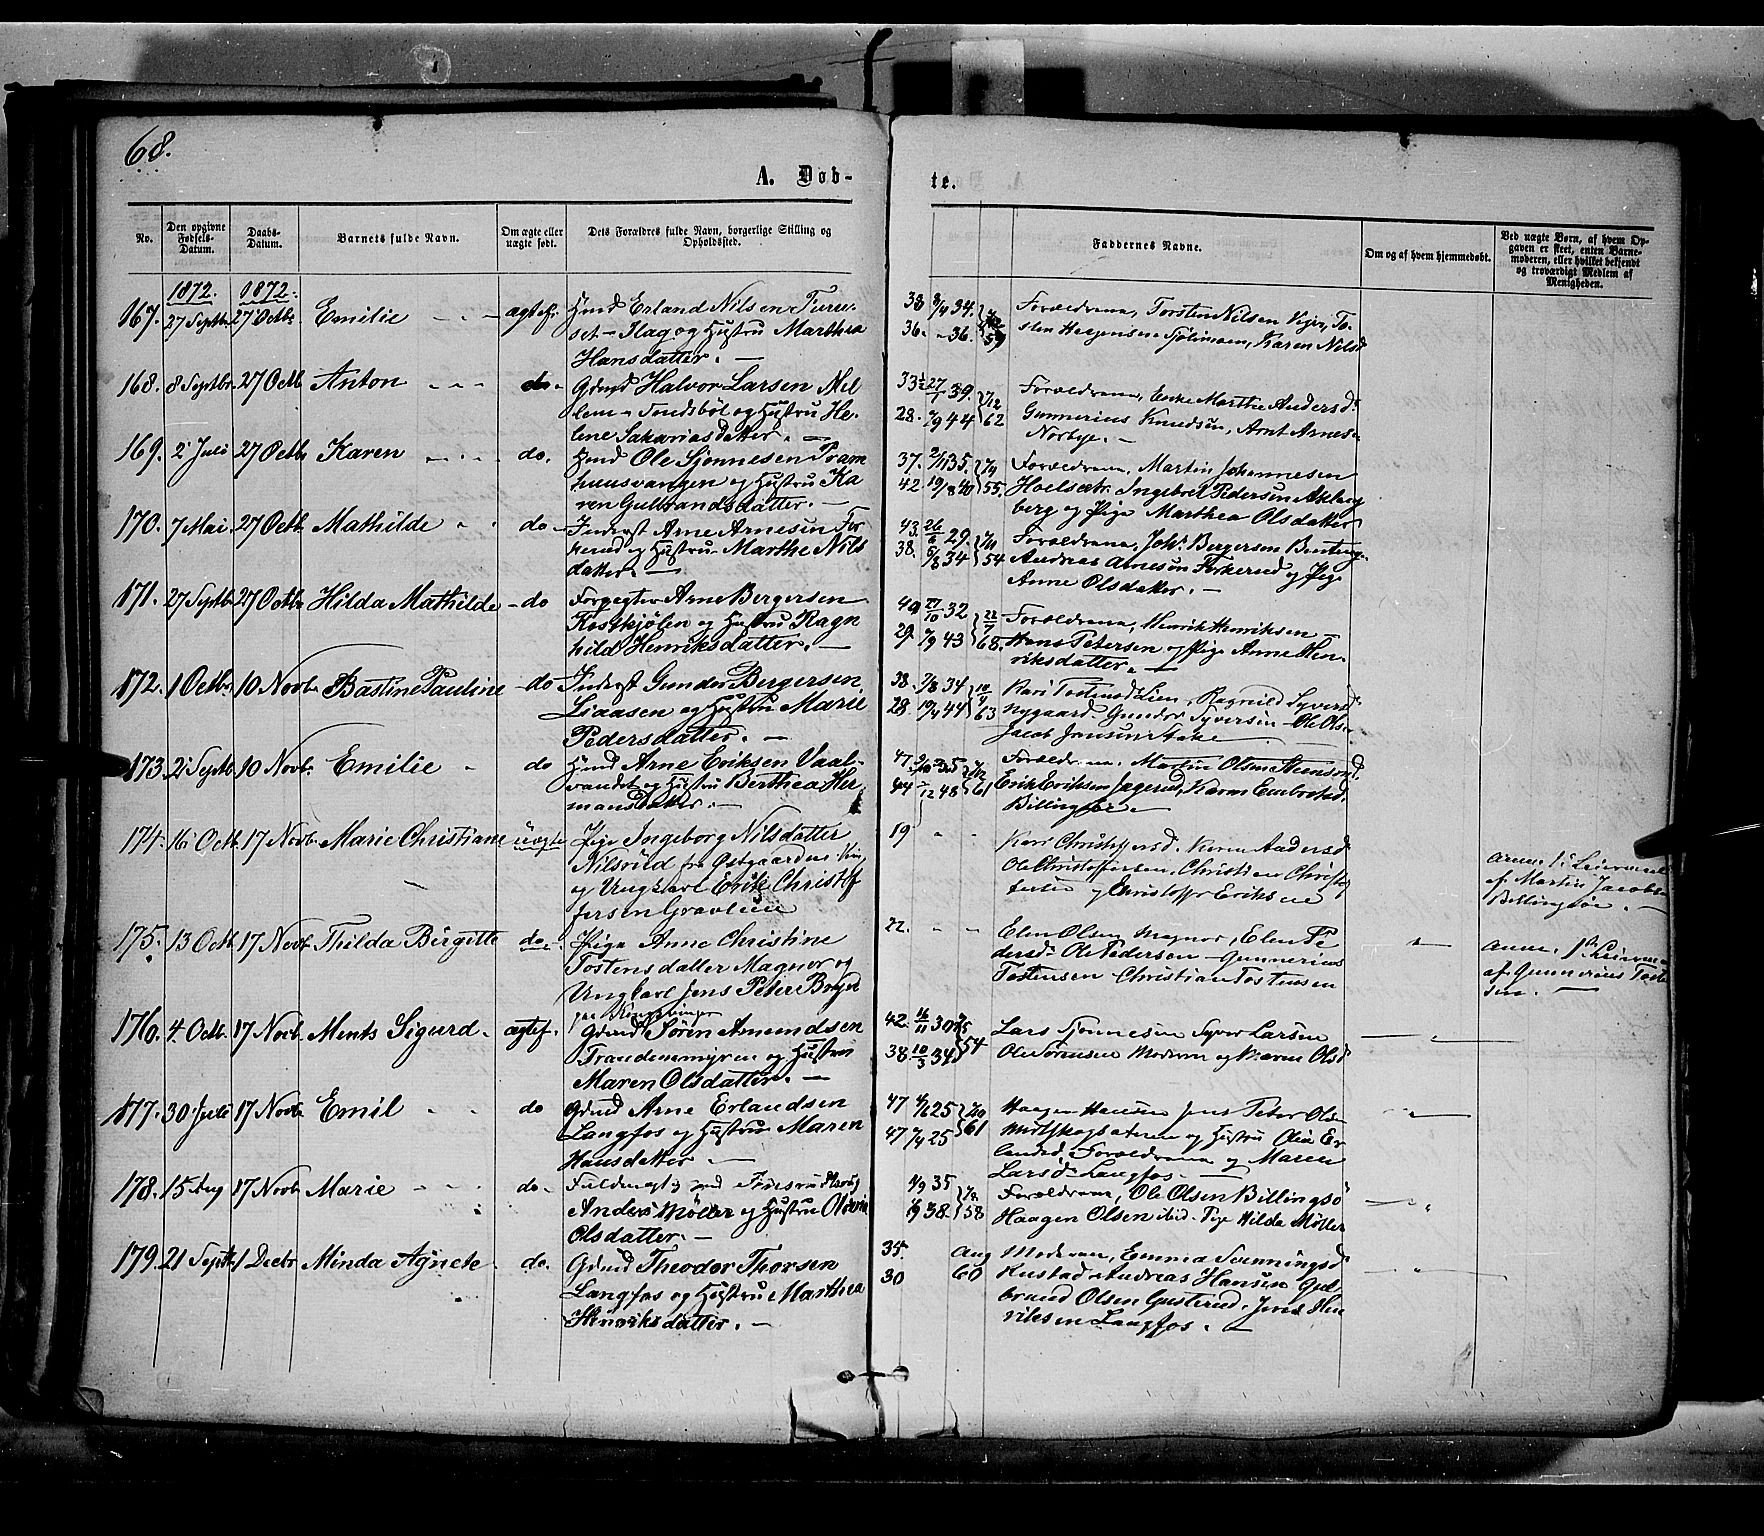 68.
A. Døb-
te.
No.
Den opgivne Fødsels-Datum.
Daabs-Datum.
Barnets fulde Navn.
Om ægte eller uægte født.
Dets Forældres fulde Navn, borgerlige Stilling og Opholdssted.
Faddernes Navne.
Om og af hvem hjemmedøbt.
Ved uægte Børn, af hvem Op-
gaven er skeet, enten Barne-
moderen, eller hvilket bekjendt
og troværdigt Medlem af
Menigheden.
1872. 1872.
167. 27 Septbr 27 Octbr Emilie ægtef. Hmd Erland Nilsen Furu-
set - Klag og Hustru Marthea
Hansdatter.
33 34.
36. - 36. 59
Forældrene, Torsten Nilsen To-
sten Karen Nilsd
168. 8 Septbr 27 Octb Anton do. Gdmd Halvor Larsen Mel
lem - Tondsbøl og Hustru He-
lene Sakariasdatter.
33½ 27/1 39. 7/12
28. 7/9 44 62
Forældrene, Enke Marthe Andersd
Gunnerius Knudsen, Arnt Arnes.
Norbye.
169. 2 Juli 27 Octb Karen do. Hmd Ole Sjønnesen Pram
huusvangen og Hustru Ka
ren Gulbrandsdatter.
37. 2/11 35.
42. 19/8 40 55.
Forældrene, Martin Johannesen
Hoelsæt. Ingebret Pedersen Akleng
berg og Pige Marthea Olsdatter
170. 7 Mai. 27 Octb Mathilde do Inderst Arne Arnesen For
kerud og Hustru Marthe Nils
datter.
43. 26 29.
38. 5/8 34 54
Forældrene, Johs Bergersen
Andreas Arnesen Forkerud og Pige
Anne Olsdatter.
171. 27 Septbr 27 Octbr Hilda Mathilde do Forpagter Arne Bergersen
Kostkjølen og Hustru Ragn
hild Henriksdatter.
40 27/10 32 22/7
29. 7/9 43 68.
Forældrene, Henrik Henriksen
Hans Petersen og Pige Anne Hen-
riksdatter.
172. 1 Octbr 10 Novbr Bastine Pauline do Inderst Gunder Bergersen,
Liaasen og Hustru Marie
Pedersdatter.
38. 7/8 34
28. 19/4 44 63
Kari Tostensd Lien, Ragnild Syversd
Nygaard Gunder Syversen - Ole Ols-
Jacob Jansen
173. 2 Septb 10 Novb. Emilie do Hmd Arne Eriksen Vaal-
vandet og Hustru Berthea Her
mansdatter.
47. 35
44 48 61
Forældrene, Martin Olsen
Erik Eriksen Jagerud, Karen
Billingsøe
174. 16 Octb. 17 Novb. Marie Christiane uægte Pige Ingeborg Nilsdatter
Nilsrud fra
og Ungkarl Erik Christof
fersen Gravlien
19 " "
Kari Christoffersd. Karen Andersd
Ole Christoffersen, Christian Christof
fersen og Christoffer Eriksen
Leierm
af Martin Jacobs
Billingsøe.
175. 13 Octb. 17 Novb. Thilda Birgitte do. Pige Anne Christine
Tostensdatter Magnor og
Ungkarl Jens Peter
22. " "
Elen Olsen Magnor, Elen Pe
dersd. Ole Pedersen - Gunnerius
Tostensen - Christian Tostensen
Anm. 1ste Leierm
af Gunnerius Tost
sen.
176. 4. Octb. 17 Novb. Ments Sigurd. ægtef. Gdmd Søren Amundsen
Trandemmyren og Hustru
Maren Olsdatter.
42. 16/11 30
38 10/3 34 54
Lars Sjønnesen Syver Larsen
Ole Sørensen Moderen og Maren Olsd
177. 30 Juli 17 Novb. Emil do Gdmd Arne Erlandsen
Langfos og Hustru Maren
Hansdatter
47 4/6 25
47 7/4 25 61
Haagen Hansen Jens Peter Ols
og Hustru Olia Er
landsd. Forældrene og Maren
Larsd. Langfos -
178. 15 Aug 17 Novb. Marie do. Fuldmægtig
Anders Møller og Hustru
Olsdatter.
4/9 35
38. 58
Forældrene, Ole Olsen Billingsö
Haagen Olsen ibid. Pige Hilda Møller
179. 21 Septb 1 Decbr Minda Agnete do. Gdmd Theodor Thorsen
Langfos og Hustru Marthea
Henriksdatter.
35. Aug
30 60
Moderen, Emma Svenningsd
Rustad Andreas Hansen Gul
brand Olsen Gusterud. Hen
riksen Langfos.